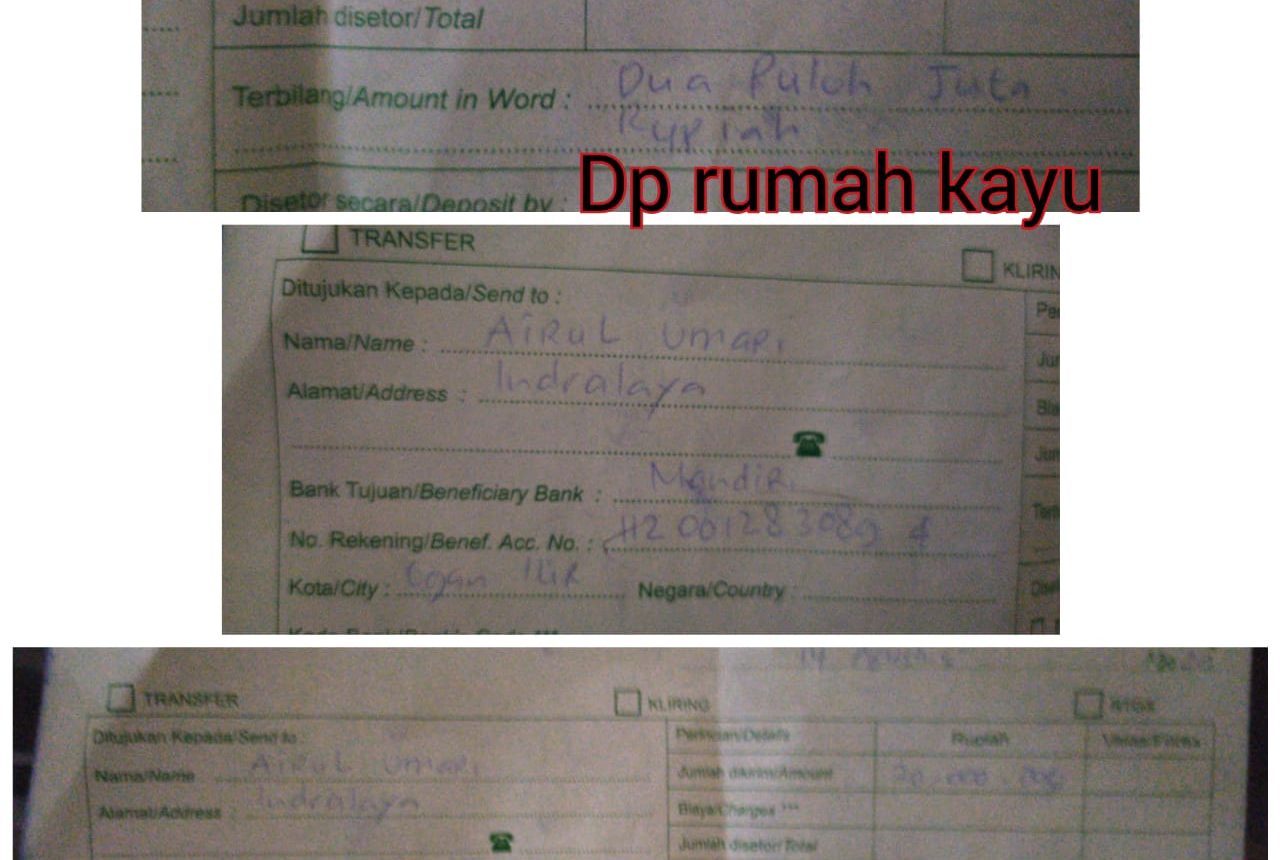 Jumlah disetor/Total
Terbilang/Amount in Word : Dua Puluh Juta
Rupiah
Disetor secara/Deposit by :
Dp rumah kayu
TRANSFER
KLIRIN
Ditujukan Kepada/Send to :
Nama/Name : AiRuL UmaRi
Alamat/Address : Indralaya
Bank Tujuan/Beneficiary Bank : MandiRi
No. Rekening/Benef. Acc. No. :
Kota/City : Ogan IliR Negara/Country :
14 Agustus
TRANSFER KLIRING RTGS
Ditujukan Kepada/Send to : Perincian/Details Rupiah Valas/Forex
Nama/Name AiRuL UmaRi Jumlah dikirim/Amount 20.000.000
Alamat/Address : Indralaya Biaya/Charges ***
Jumlah disetor/Total